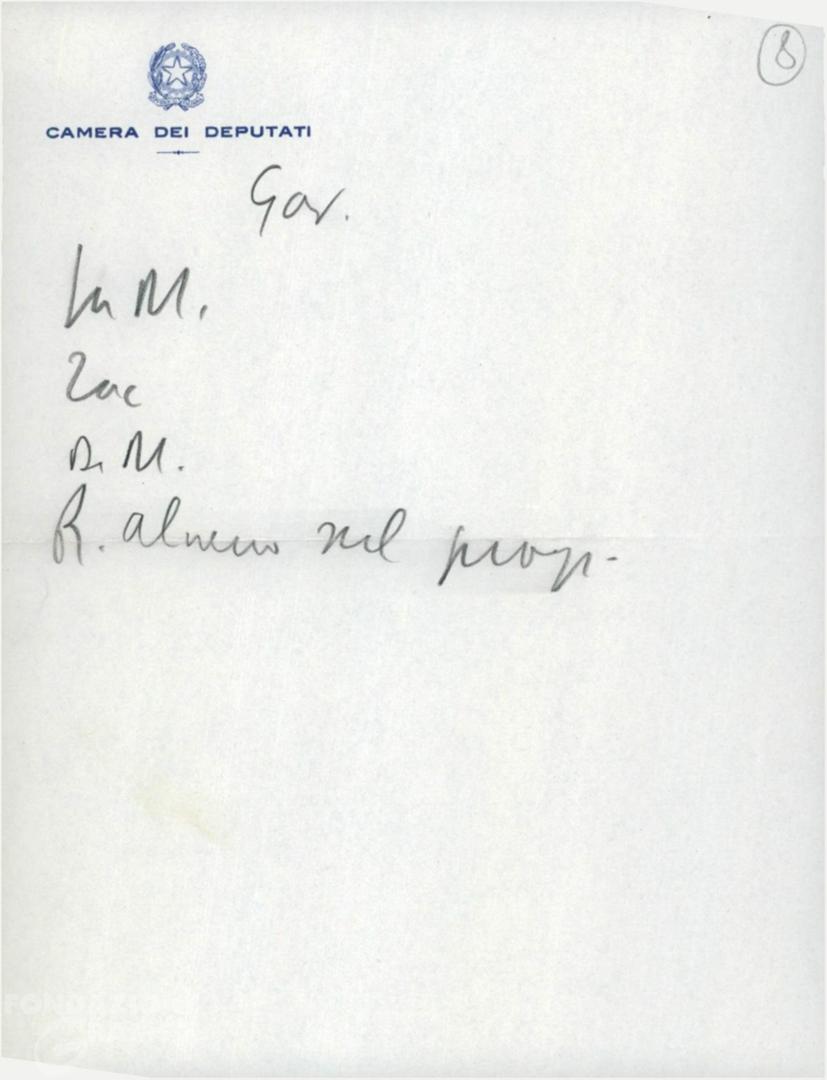 8
CAMERA DEI DEPUTATI
Gov.
La M.
Zac
D. M.
R. almeno nel progr.
FONDAZIONE